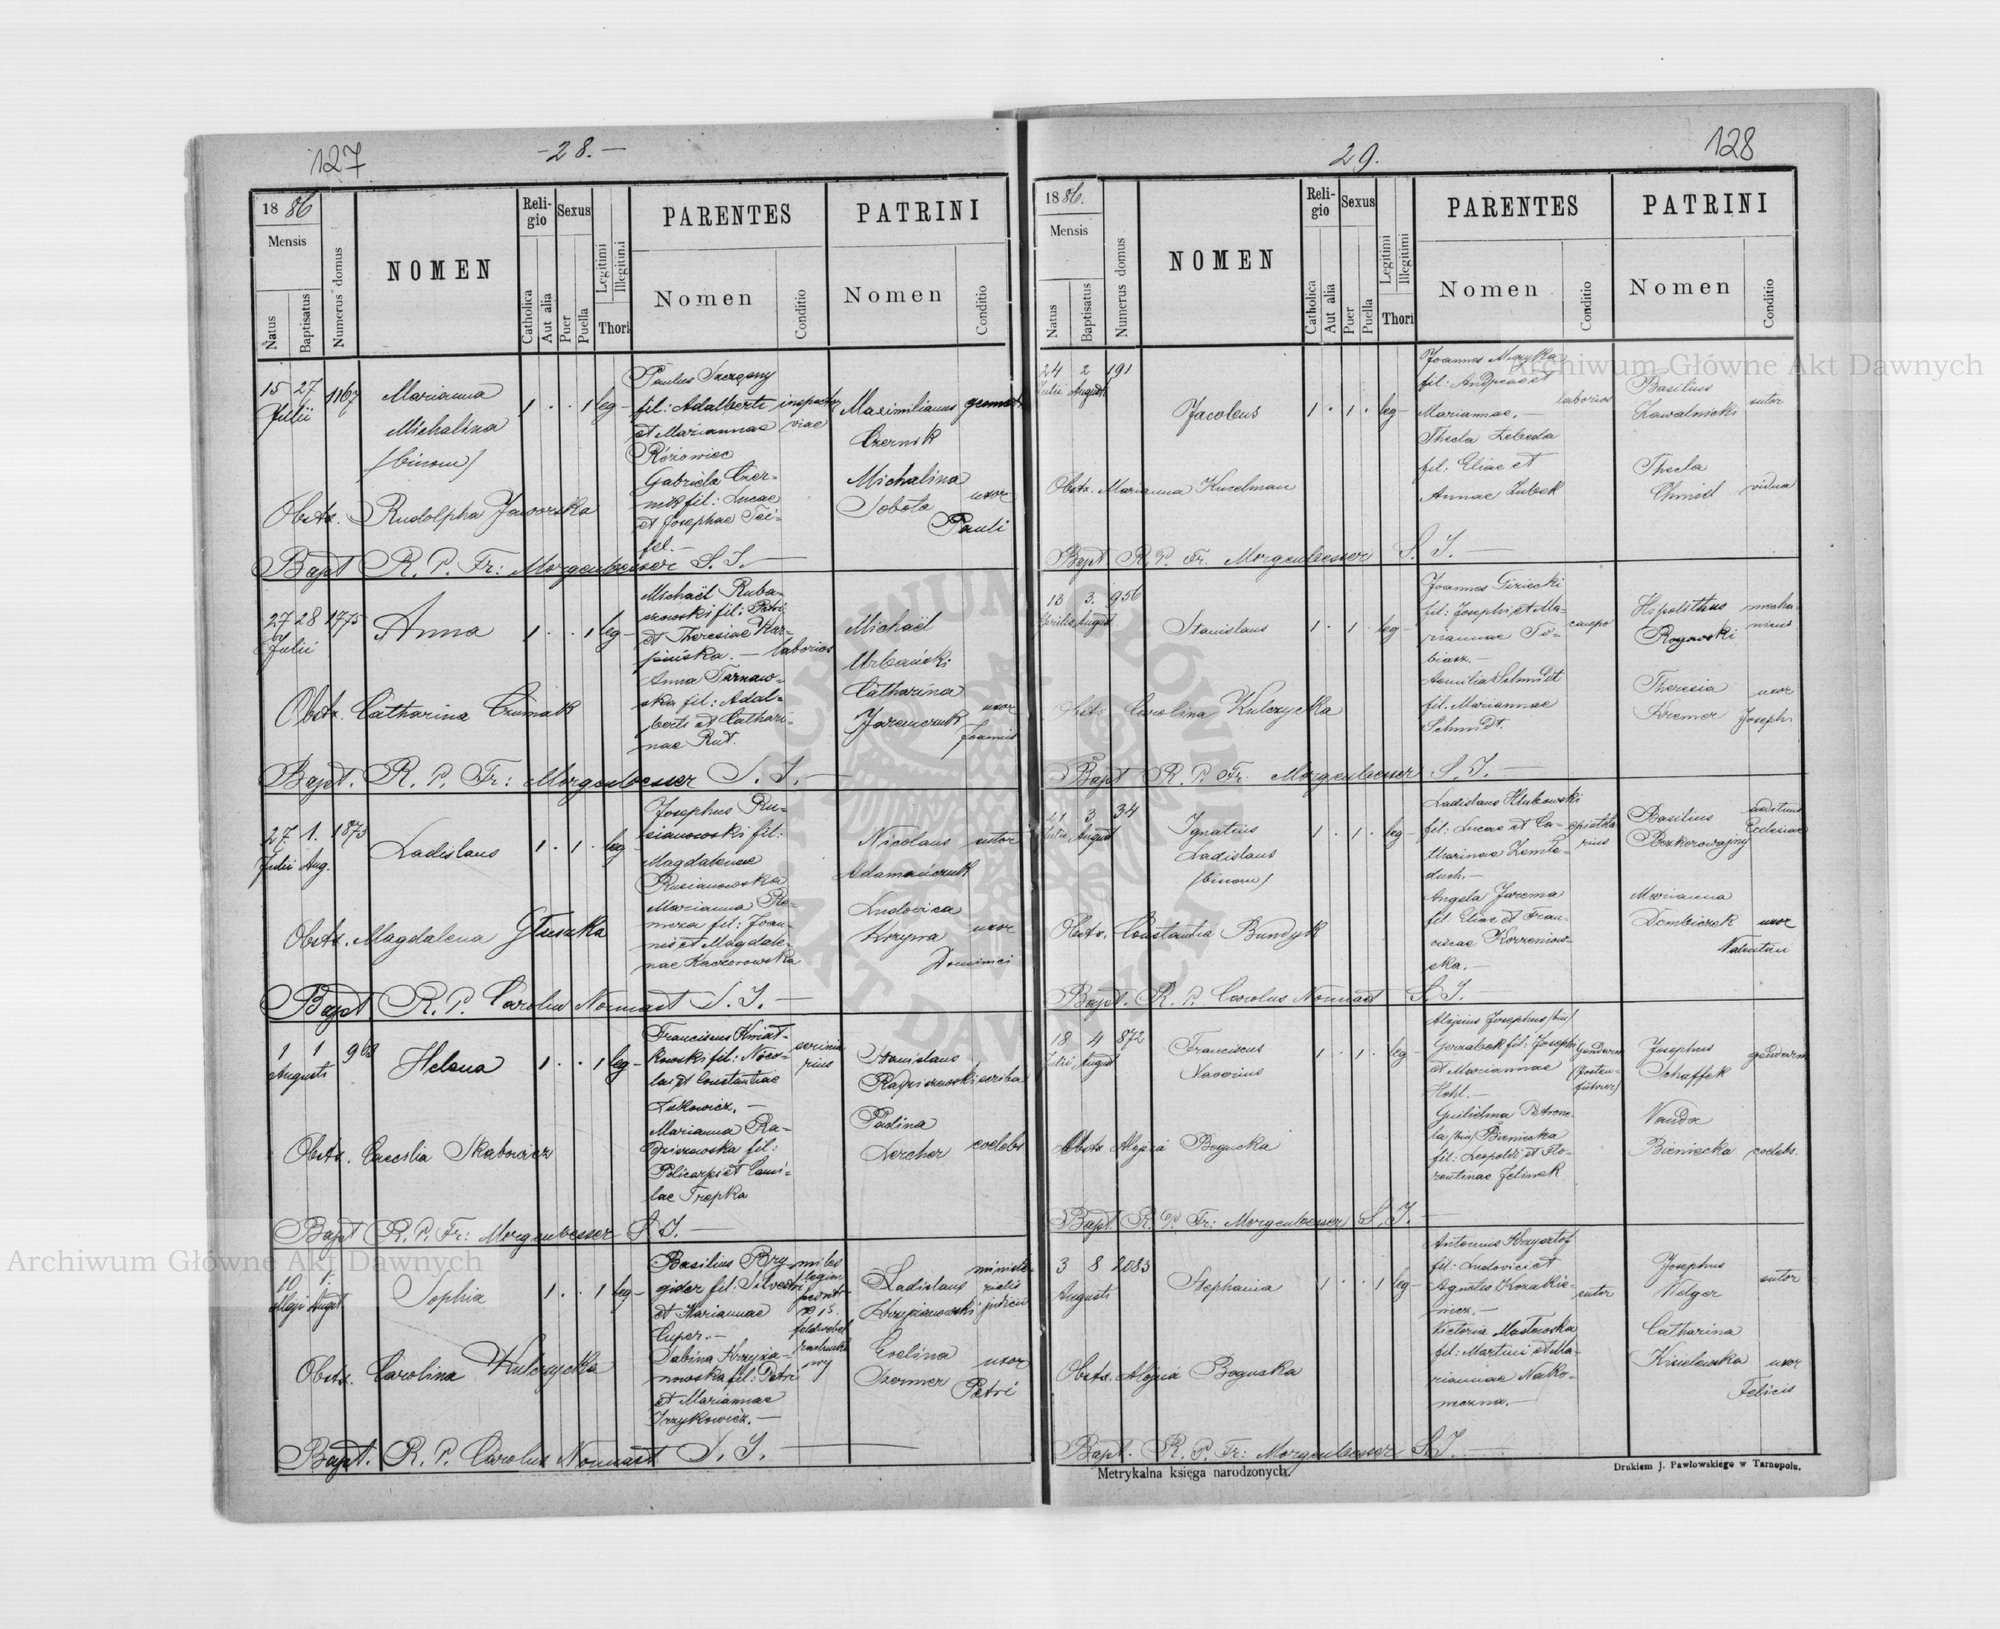 127
- 28. -
18 86
Mensis
Natus
Baptisatus
Numerus domus
NOMEN
Religio
Catholica
Aut alia
Sexus
Puer
Puella
Legitimi
Illegitimi
Thori
PARENTES
Nomen
Conditio
PATRINI
Nomen
Conditio
15 27 1167
Julii
Marianna
Michalina
(binom)
1 . . 1 leg -
Paulus Szczęsny
fil: Adalberti
et Mariannae
Rózowiec
Gabriela Czer-
nik fil: Lucae
et Josephae Tei-
fel. -
inspector
viae
Maximilianus
Czernik
Michalina
Sobota
uxor
Pauli
Obstx. Rudolpha Jaworska
Bapt R. P. Fr: Morgenbesser S. J. -
27 28 1775
Julii
Anna
1 . . 1 leg -
Michaël Ruba-
szewski fil: Petri
et Theresiae Kar-
pińska. -
Anna Tarnaw-
ska fil: Adal-
berti et Cathari-
nae Rut.
laborios
Michaël
Urbański
Catharina
Jaremczuk
uxor
Joannis
Obstx. Catharina Czumak
Bapt. R. P. Fr: Morgenbesser S. J. -
27. 1. 1873
Julii Aug.
Ladislaus
1 . 1 . leg -
Josephus Ru-
sianowski fil:
Magdalenae
Rusianowska
Marianna Ro-
meza fil: Joan-
nis et Magdale-
nae Kaczorowska
Nicolaus sutor
Adamańczuk
Ludovica
Krzywa
uxor
Dominici
Obstx. Magdalena Głuszka
Bapt. R. P. Carolus Normast S. J. -
1 1 968
Augusti
Helena
1 . . 1 leg -
Franciscus Kwiat-
kowski fil: Nico-
lai et Constantiae
Lukowicz. -
Marianna Ra-
dziszewska fil:
Policarpi et Cami-
lae Trepka
Stanislaus
Radziszewski scriba
Paulina
Lercher coelebs
Obstx. Caecilia Skabowicz
Bapt R. P. Fr: Morgenbesser S. J. -
10 1.
Maji August
Sophia
1 . . 1 leg -
Basilius Bry-
gider fil: Silvestri
et Mariannae
Cuper. -
Sabina Krzyża-
nowska fil: Petri
et Mariannae
Irzykowicz. -
miles
Ladislaus
Krzyżanowski
Evelina
Szermer
uxor
Petri
Obstx. Carolina Kulczycka
Bapt. R. P. Carolus Normast S. J. -
128
29.
18 86.
Mensis
Natus
Baptisatus
Numerus domus
NOMEN
Religio
Catholica
Aut alia
Sexus
Puer
Puella
Legitimi
Illegitimi
Thori
PARENTES
Nomen
Conditio
PATRINI
Nomen
Conditio
24 2 191
Julii August
Jacobus
1 . 1 . leg -
Joannes Muzyka
fil: Andreae et
Mariannae. -
Thecla Lebeda
fil: Eliae et
Annae Zubek
laborios
Basilius
Zawalnicki
sutor
Thecla
Chmiel vidua
Obstx. Marianna Kucelman
Bapt R. P. Fr. Morgenbesser S. J. -
13 3. 956
Aprilis August
Stanislaus
1 . 1 . leg -
Joannes Giziecki
fil: Josephi et Ma-
riannae To-
biasz. -
Aemilia Schmidt
fil. Mariannae
Schmidt.
caupo
Hipolithus
Rogowski
mecha-
nicus
Theresia
Kremer
uxor
Josephi
Obstx Carolina Kulczycka
Bapt R. P. Fr: Morgenbesser S. J. -
21 3 34
Julii August
Ignatius
Ladislaus
(binom)
1 . 1 . leg -
Ladislaus Klubowski
fil: Lucae et Ca-
tharinae Zemle-
duch. -
Angela Jarema
fil: Eliae et Fran-
ciscae Korzeniow-
ska. -
Basilius
Bezkorowajny
aedituus
Ecclesiae
Marianna
Dembiczek uxor
Valentini
Obstx. Constantia Bundyk
Bapt. R. P. Carolus Normast S. J. -
18 4 872
Julii August
Franciscus
Xaverius
1 . 1 . leg -
Aloisius Josephus /bin/
Gerzabek fil: Josephi
et Mariannae
Hohl. -
Guilielma Petrone-
la /bin/ Bieniecka
fil: Leopoldi et Flo-
rentinae Jelinek
Gendarm
(Posten-
führer)
Josephus
Schaffek
gendarm
Vanda
Bieniecka coelebs.
Obstx Alojzia Boguska
Bapt. R. P. Fr: Morgenbesser S. J. -
3 8 2083
Augusti
Stephania
1 . . 1 leg -
Antonius Krzysztof
fil: Ludovici et
Agnetis Kozakie-
wicz. -
Victoria Masłowska
fil: Martini et Ma-
riannae Nako-
neczna. -
sutor
Josephus
Welger
sutor
Catharina
Kisielewska uxor
Felicis
Obstx. Alojzia Boguska
Bapt. R. P. Fr: Morgenbesser S. J. -
Metrykalna księga narodzonych.
Drukiem J. Pawłowskiego w Tarnopolu.
Archiwum Główne Akt Dawnych
Archiwum Główne Akt Dawnych
ARCHIWUM GŁÓWNE AKT DAWNYCH